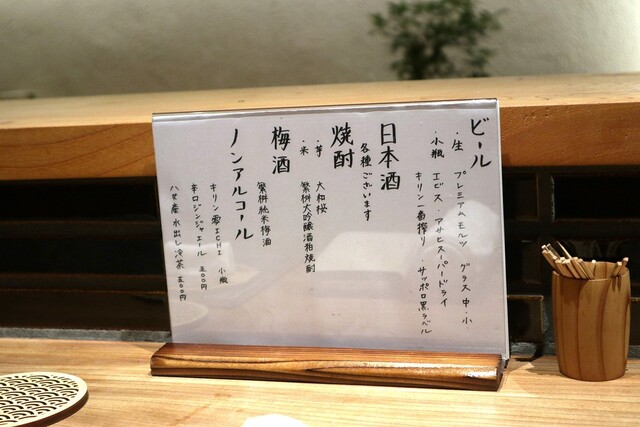 ビール
・生 プレミアムモルツ グラス 中・小
・小瓶 エビス・アサヒスーパードライ
キリン一番搾り・サッポロ黒ラベル
日本酒
各種ございます
焼酎
・芋 大和桜
・米 繁桝大吟醸酒粕焼酎
梅酒
繁桝純米梅酒
ノンアルコール
キリン零ICHI 小瓶
辛口ジンジャエール 五〇〇円
八女産 水出し冷茶 五〇〇円